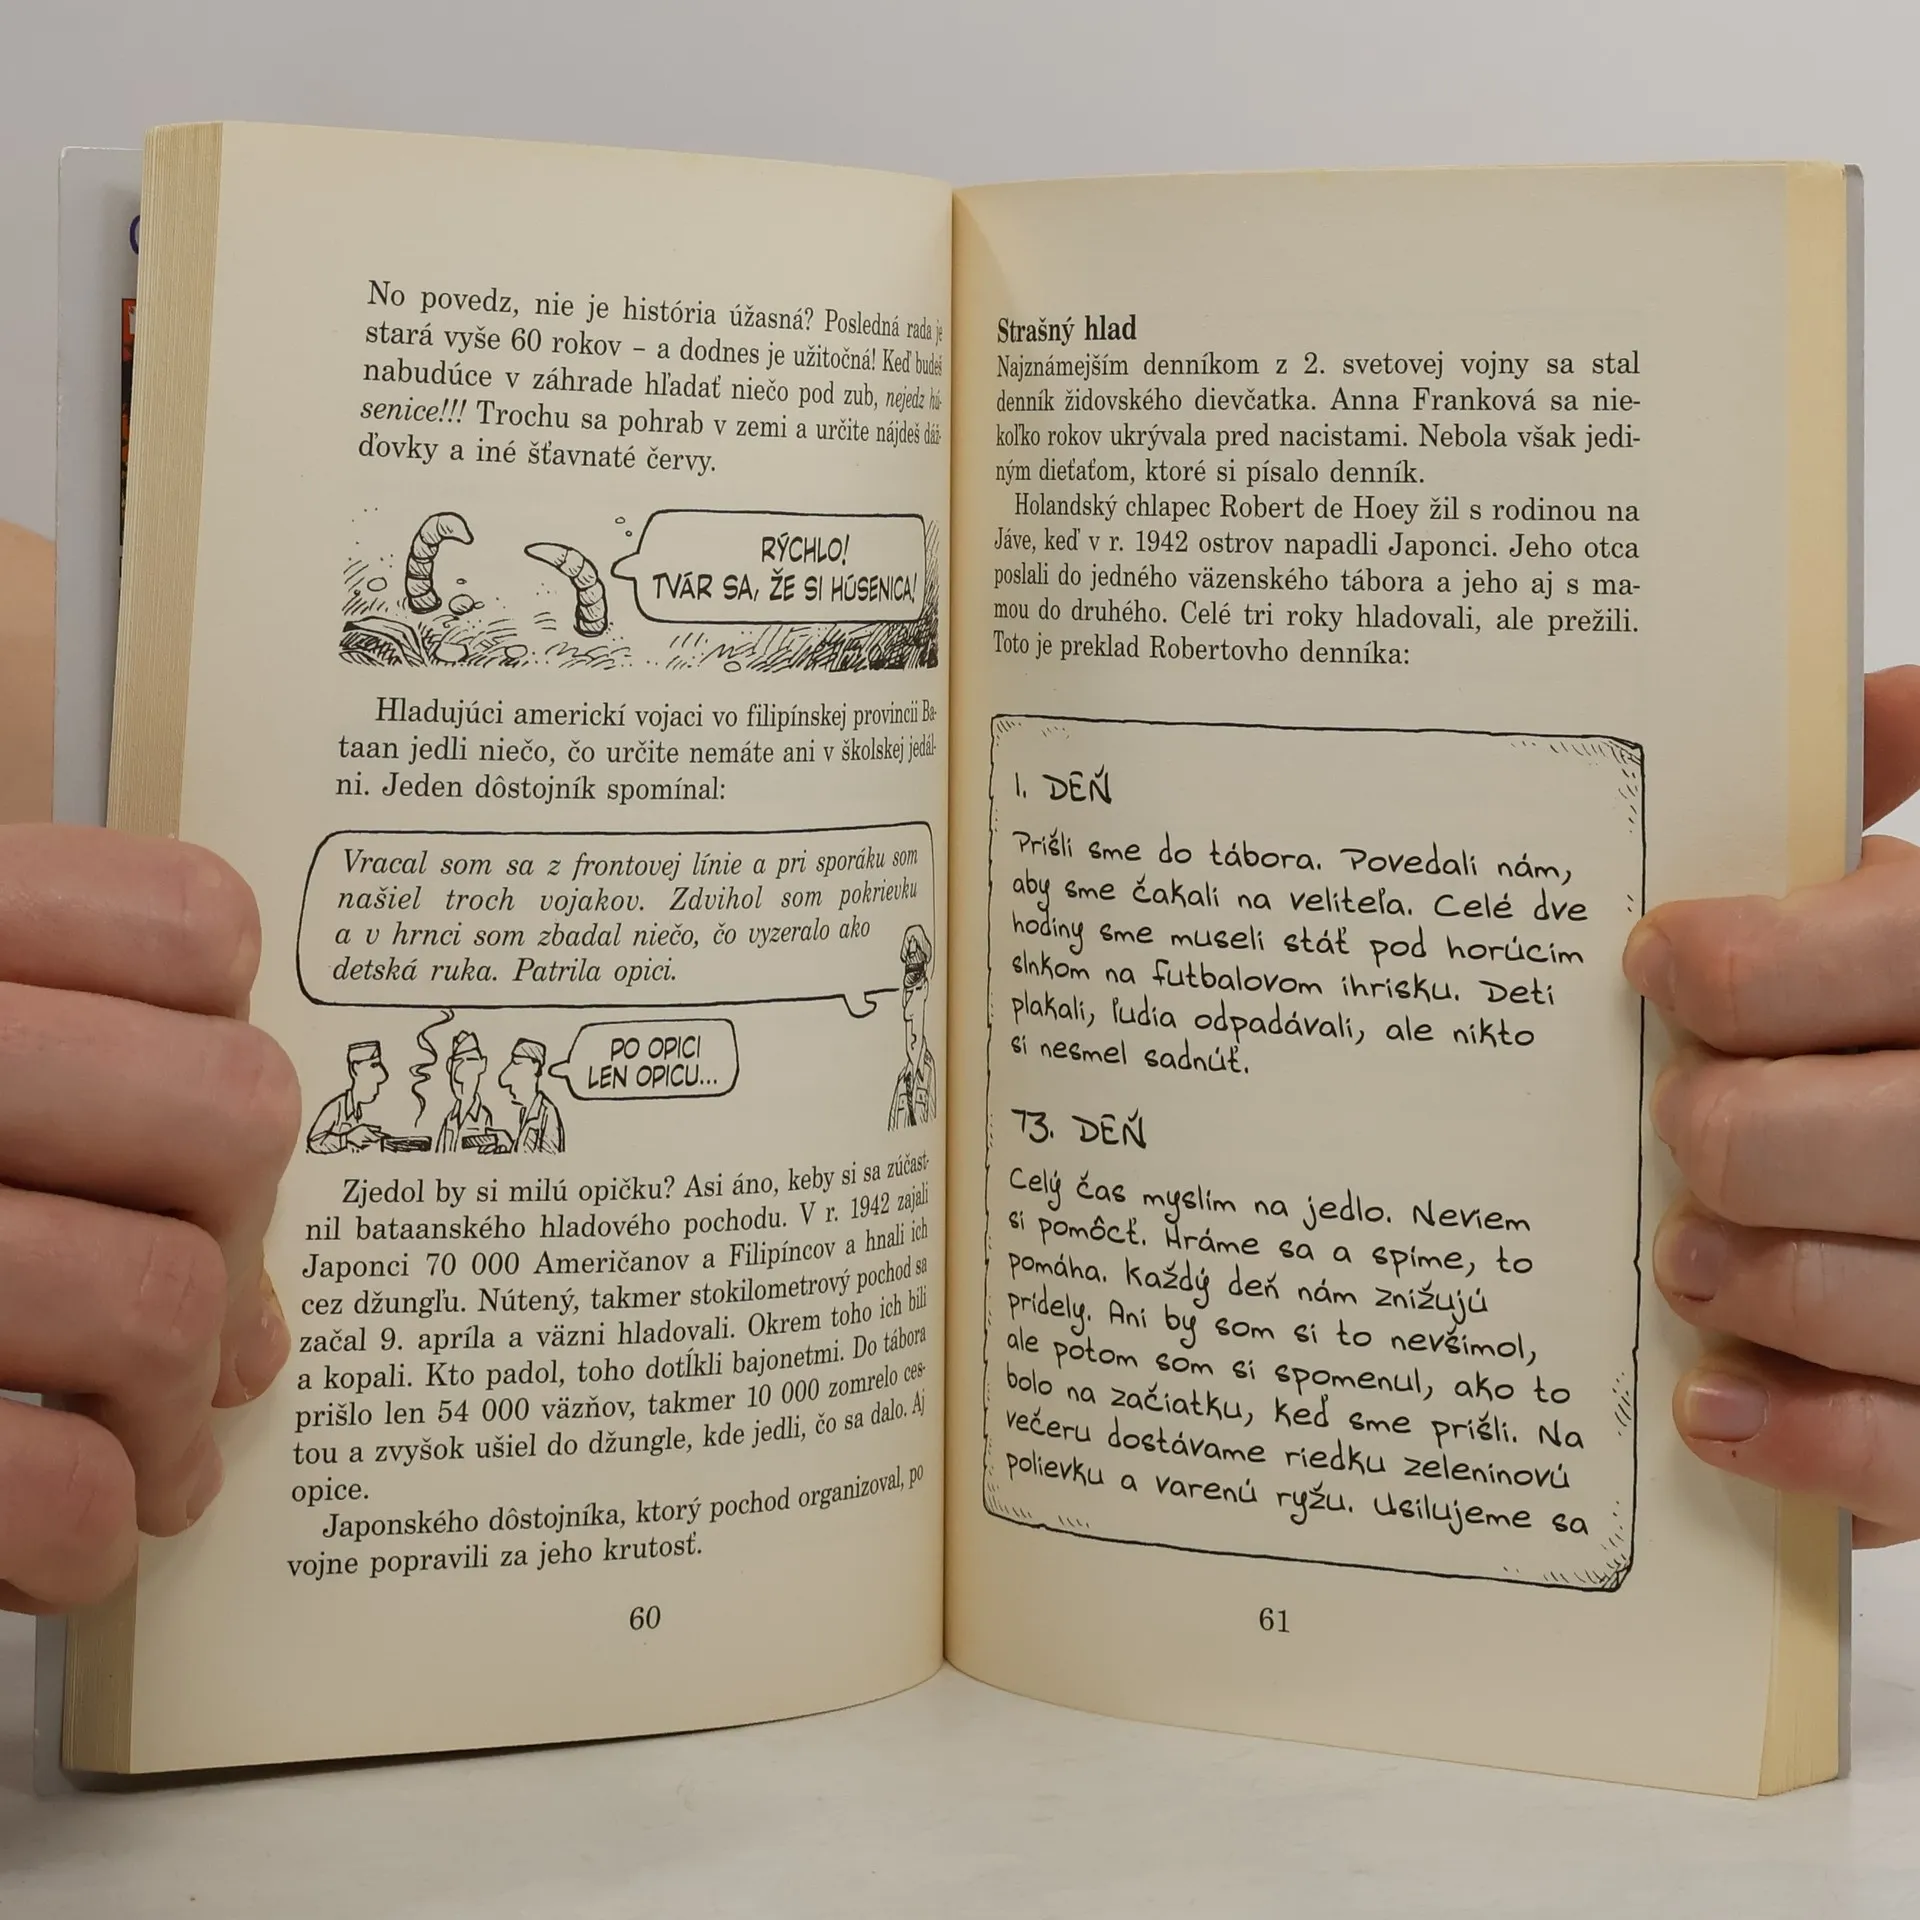 No povedz, nie je história úžasná? Posledná rada je
stará vyše 60 rokov – a dodnes je užitočná! Keď budeš
nabudúce v záhrade hľadať niečo pod zub, nejedz hú-
senice!!! Trochu sa pohrab v zemi a určite nájdeš dáž-
ďovky a iné šťavnaté červy.
RÝCHLO!
TVÁR SA, ŽE SI HÚSENICA!
Hladujúci americkí vojaci vo filipínskej provincii Ba-
taan jedli niečo, čo určite nemáte ani v školskej jedál-
ni. Jeden dôstojník spomínal:
Vracal som sa z frontovej línie a pri sporáku som
našiel troch vojakov. Zdvihol som pokrievku
a v hrnci som zbadal niečo, čo vyzeralo ako
detská ruka. Patrila opici.
PO OPICI
LEN OPICU...
Zjedol by si milú opičku? Asi áno, keby si sa zúčast-
nil bataanského hladového pochodu. V r. 1942 zajali
Japonci 70 000 Američanov a Filipíncov a hnali ich
cez džungľu. Nútený, takmer stokilometrový pochod sa
začal 9. apríla a väzni hladovali. Okrem toho ich bili
a kopali. Kto padol, toho dotĺkli bajonetmi. Do tábora
prišlo len 54 000 väzňov, takmer 10 000 zomrelo ces-
tou a zvyšok ušiel do džungle, kde jedli, čo sa dalo. Aj
opice.
Japonského dôstojníka, ktorý pochod organizoval, po
vojne popravili za jeho krutosť.
60
Strašný hlad
Najznámejším denníkom z 2. svetovej vojny sa stal
denník židovského dievčatka. Anna Franková sa nie-
koľko rokov ukrývala pred nacistami. Nebola však jedi-
ným dieťaťom, ktoré si písalo denník.
Holandský chlapec Robert de Hoey žil s rodinou na
Jáve, keď v r. 1942 ostrov napadli Japonci. Jeho otca
poslali do jedného väzenského tábora a jeho aj s ma-
mou do druhého. Celé tri roky hladovali, ale prežili.
Toto je preklad Robertovho denníka:
1. DEŇ
Prišli sme do tábora. Povedali nám,
aby sme čakali na veliteľa. Celé dve
hodiny sme museli stáť pod horúcim
slnkom na futbalovom ihrisku. Deti
plakali, ľudia odpadávali, ale nikto
si nesmel sadnúť.
73. DEŇ
Celý čas myslím na jedlo. Neviem
si pomôcť. Hráme sa a spíme, to
pomáha. Každý deň nám znižujú
prídely. Ani by som si to nevšimol,
ale potom som si spomenul, ako to
bolo na začiatku, keď sme prišli. Na
večeru dostávame riedku zeleninovú
polievku a varenú ryžu. Usilujeme sa
61